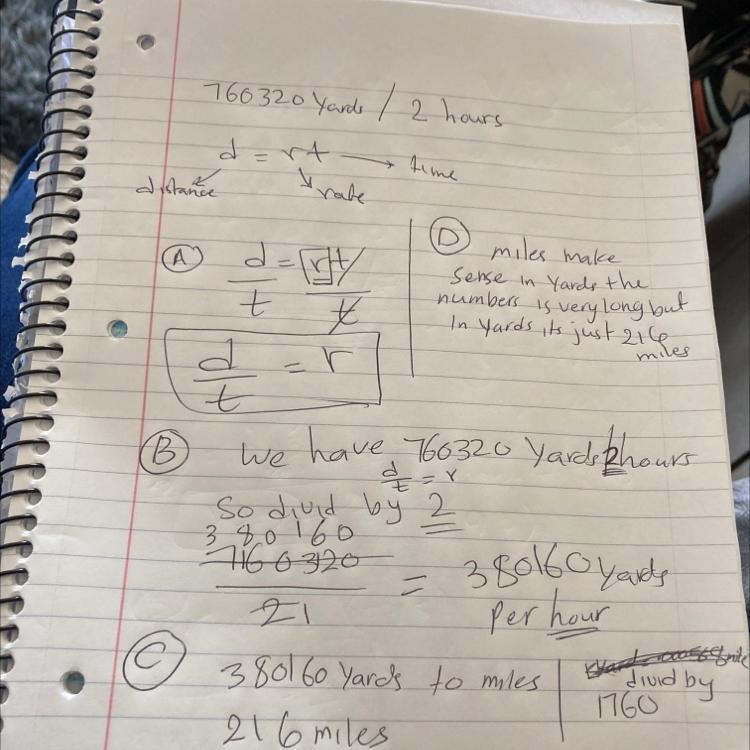 760320 Yards / 2 hours
d = rt → time
distance
rate
A
d = rt
t t
d = r
t
D
miles make
sense in Yards the
numbers is very long but
In Yards its just 216
miles
B
We have 760320 Yards 2 hours
d/t = r
So divid by 2
380160
760320
2
= 380160 Yards
Per hour
C
380160 Yards to miles
216 miles
divid by
1760